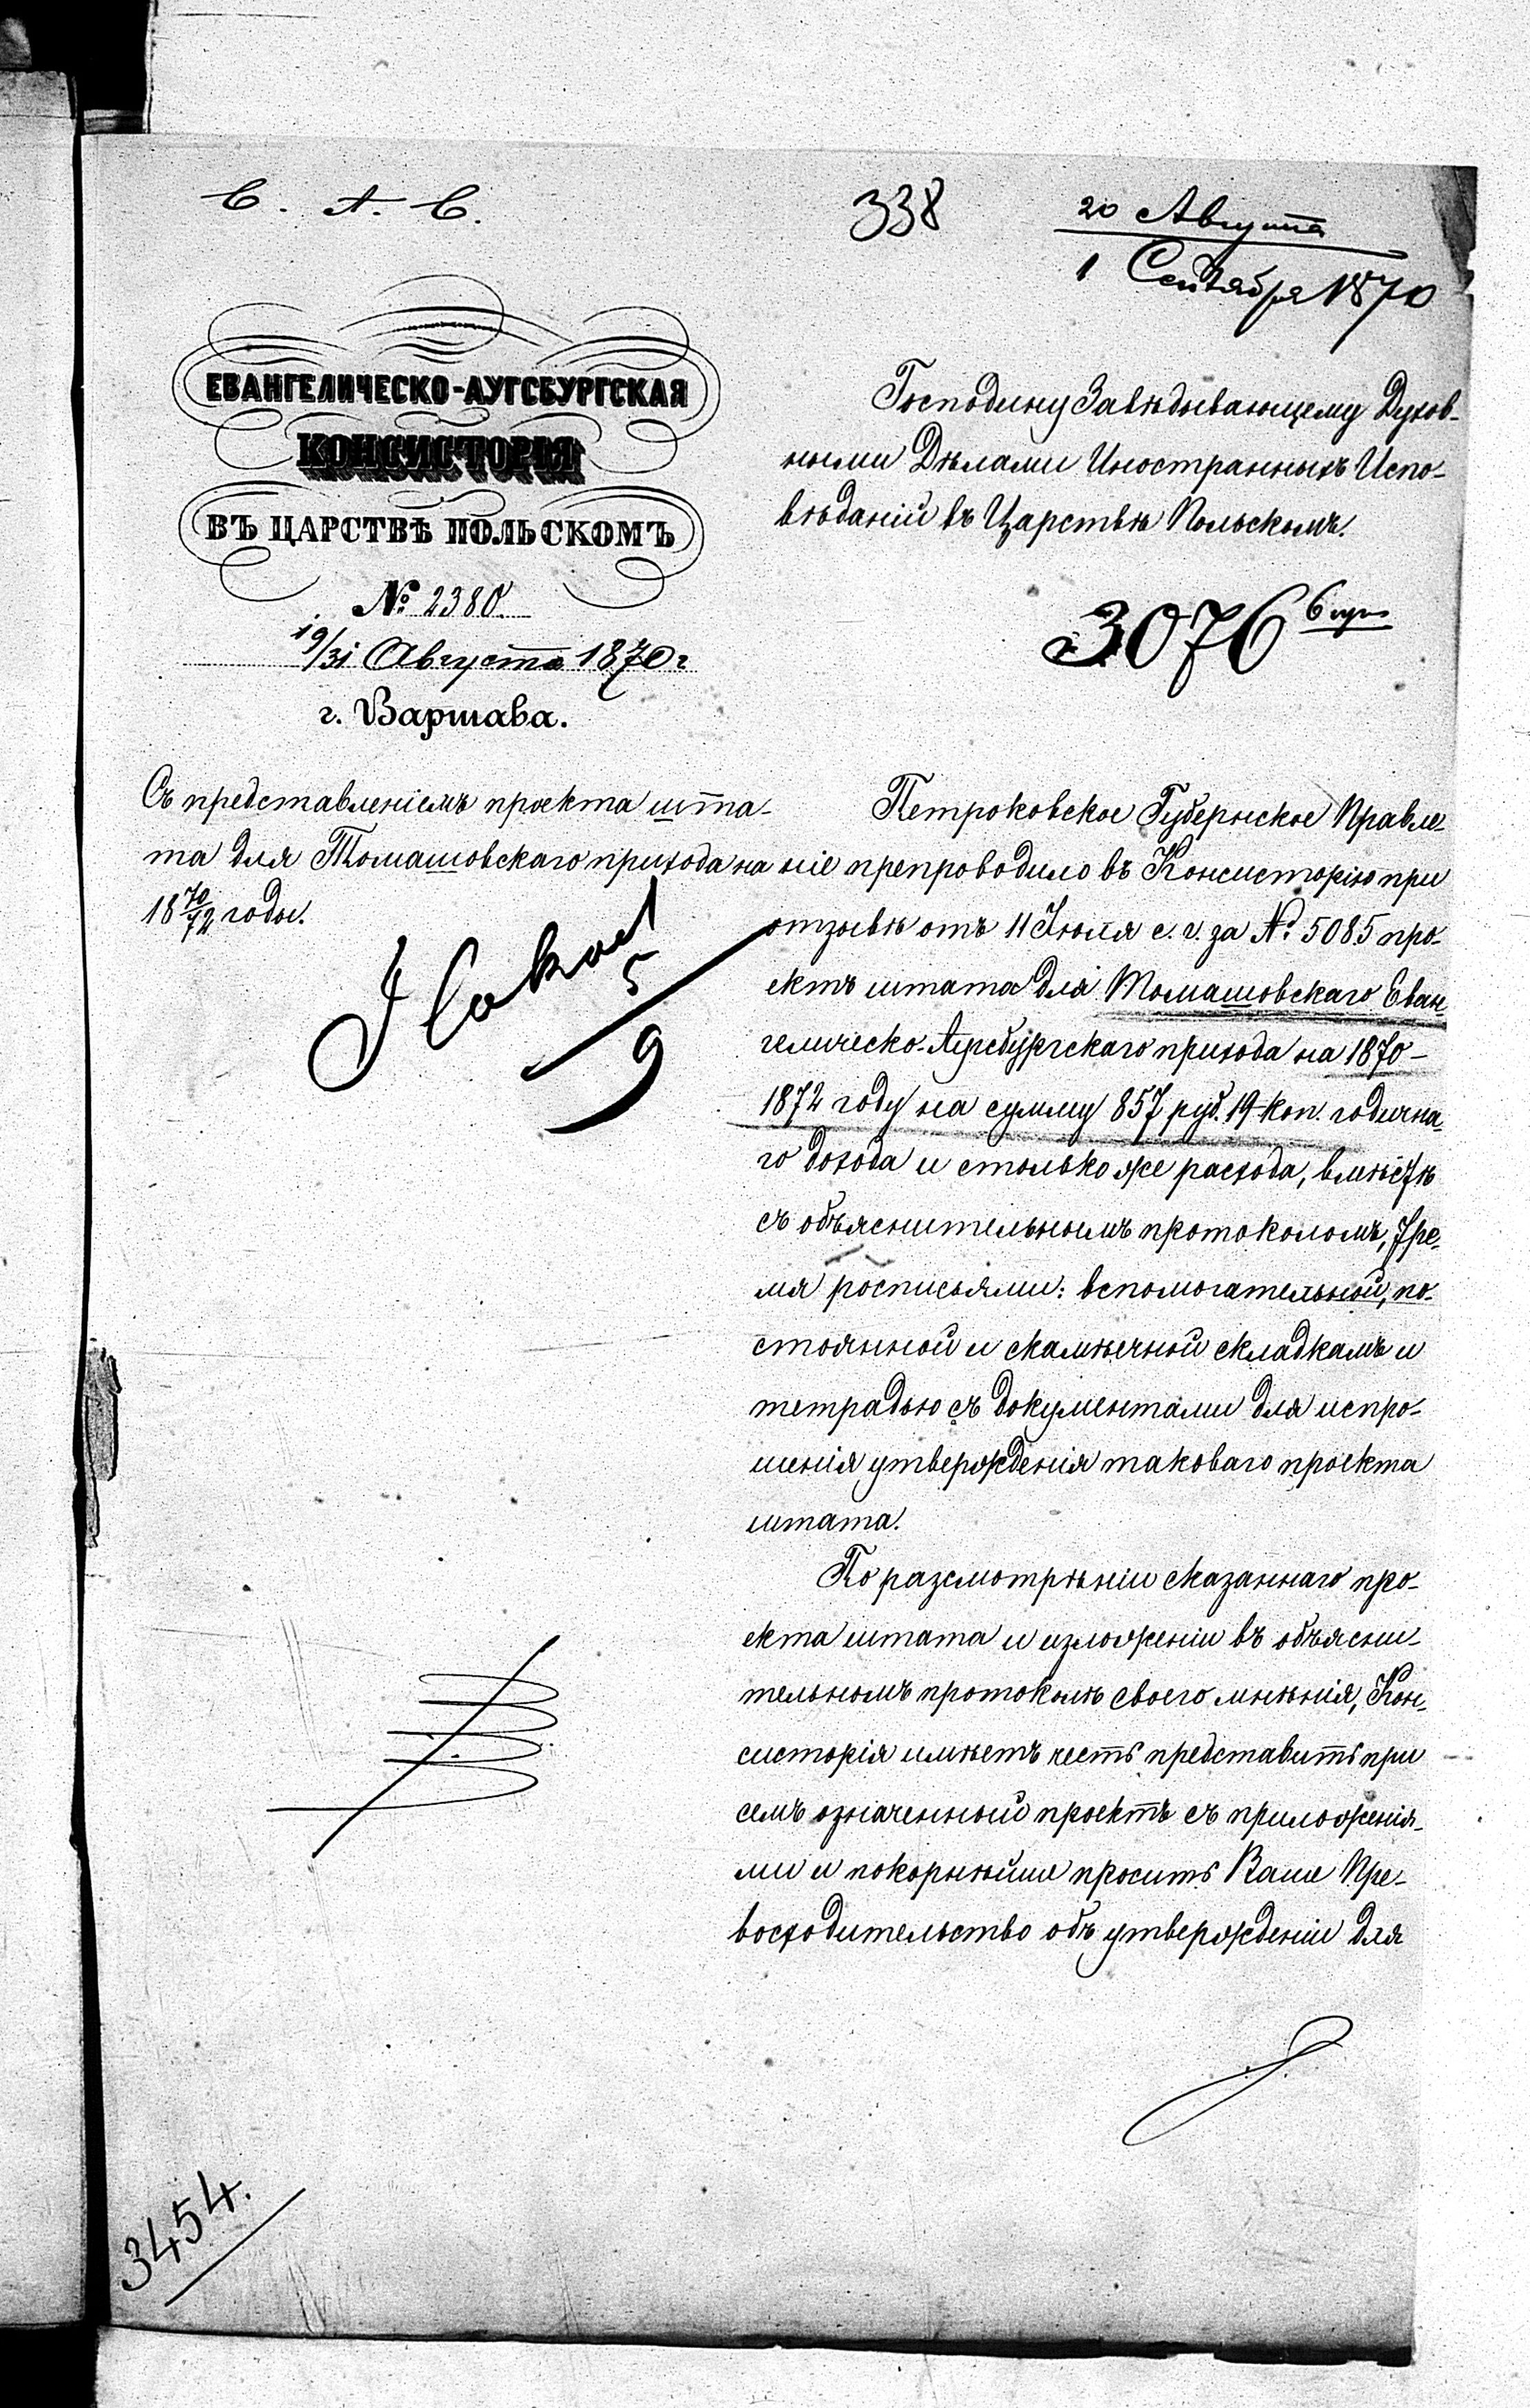 С. А. С.
338
20 Августа
1 Сентября 1870
ЕВАНГЕЛИЧЕСКО-АУГСБУРГСКАЯ
КОНСИСТОРІЯ
ВЪ ЦАРСТВѢ ПОЛЬСКОМЪ
№ 2380.
19/31 Августа 1870 г
г. Варшава.
Господину Завѣдывающему Духов-
ными Дѣлами Иностранныхъ Испо-
вѣданій въ Царствѣ Польскомъ.
3076
Съ представленіемъ проекта шта-
та для Томашовскаго прихода на
18 70/72 годы.
5
9
Петроковское Губернское Правле-
ніе препроводило въ Консисторію при
отзывѣ отъ 11 Іюля с. г. за № 5085 про-
ектъ штата для Томашовскаго Еван
гелическо-Аугсбургскаго прихода на 1870-
1872 году на сумму 857 руб. 19 коп. годична-
го дохода и столько же расхода, вмѣстѣ
съ объяснительнымъ протоколомъ, тре-
мя росписьями: вспомогательной, по-
стоянной и скамѣечной складкамъ и
тетрадью съ документами для испро-
шенія утвержденія таковаго проекта
штата.
По разсмотрѣніи сказаннаго про-
екта штата и изложеніи въ объясни-
тельномъ протоколѣ своего мнѣнія, Кон-
систорія имѣетъ честь представить при
семъ означенный проектъ съ приложенія-
ми и покорнѣйше проситъ Ваше Пре-
восходительство объ утвержденіи для
3454.